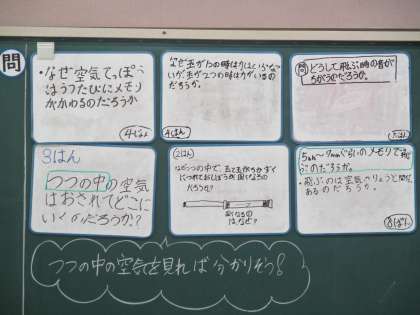 問
・なぜ空気てっぽう
はうつたびにメモリ
がかわるのだろうか
4はん
なぜ玉が1つの時は
いが玉が2つの時は
だろうか。
問 どうして飛ぶ時の音が
ちがうのだろうか。
3はん
つつの中の空気
はおされてどこに
いくのだろうか?
2はん
なぜつつの中で、玉と玉が
だろうか?
はなぜ?
5cm〜9cmぐらいのメモリで飛
ぶのだろうか。
・飛ぶのは空気のりょうと関係
あるのだろうか。
8ぱん
つつの中の空気を見れば分かりそう!